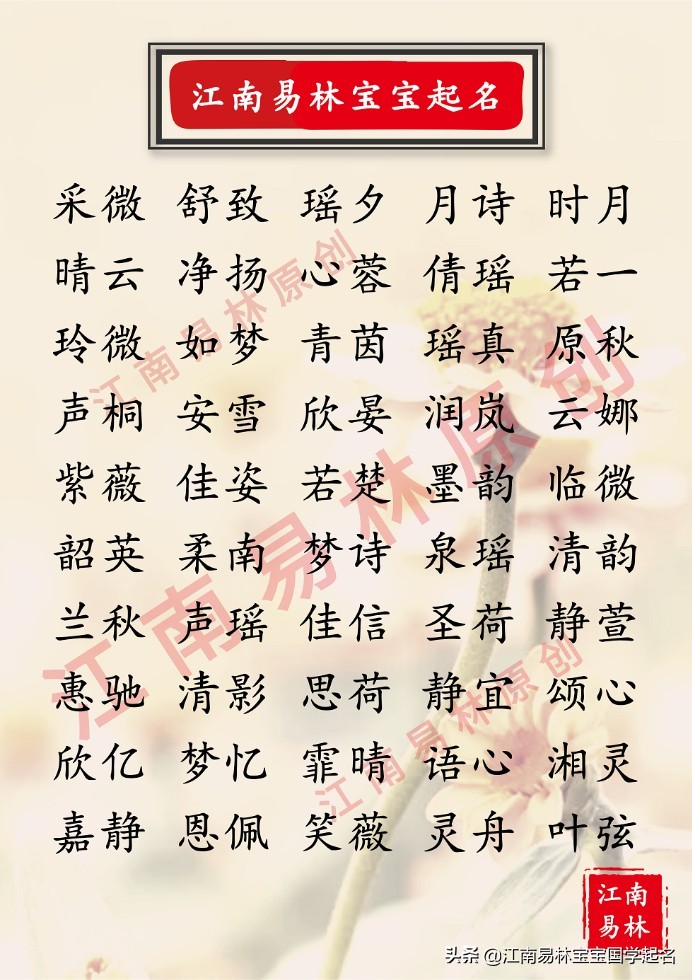 江南易林宝宝起名
采微 舒致 瑶夕 月诗 时月
晴云 净扬 心蓉 倩瑶 若一
玲微 如梦 青茵 瑶真 原秋
声桐 安雪 欣晏 润岚 云娜
紫薇 佳姿 若楚 墨韵 临微
韶英 柔南 梦诗 泉瑶 清韵
兰秋 声瑶 佳信 圣荷 静萱
惠驰 清影 思荷 静宜 颂心
欣亿 梦忆 霏晴 语心 湘灵
嘉静 恩佩 笑薇 灵舟 叶弦
江南易林原创
江南易林原创
江南易林原创
江南
易林
头条 @江南易林宝宝国学起名